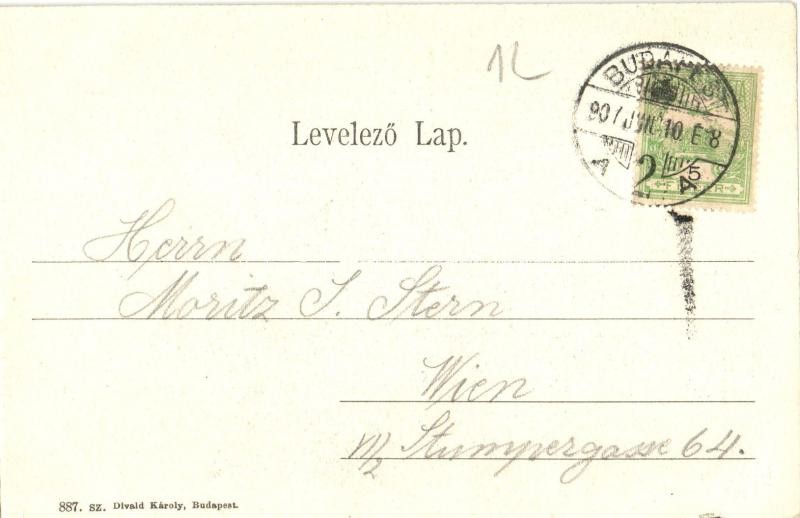 12
BUDAPEST
901 JUL 10 E 8
A 2 A
5
FILLÉR
Levelező Lap.
Herrn
Moritz J. Stern
Wien
VI/2 Stumpergasse 64.
887. SZ. Divald Károly, Budapest.